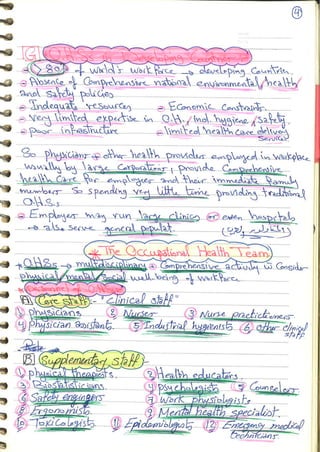 4
G OHS in Developing Countries
> 80% of world's work force → developing Countries.
- Absence of Comprehensive national environmental/health/
and safety policies
- Inadequate resources - Economic Constraints.
- Very limited expertise in O.H./Ind. hygiene/safety.
- poor infrastructure - limited health care delivery
services
So physicians & other health providers employed in workplace
usually by large corporations, provide Comprehensive
health Care for employees and their immediate family
members. So spending very little time providing traditional
O.H.Ss
- Employers may run large clinics or even hospitals
→ also serve general populat.
* The Occupational Health Team
- OHSs → multidisciplinary & Comprehensive activity
physical/mental/social well-being of workforce
A Core Staff "Clinical staff"
1 physicians 2 Nurses 3 Nurse practitioners
4 physician assistants 5 Industrial hygienists 6 other clinical
staff
B Supplementary staff
1 physical therapists. 2 Health educators.
3 Biostatisticians 4 psychologists 5 Counselors
6 Safety engineers 7 Work physiologists
8 Ergonomists 9 Mental health specialist.
10 Toxicologists 11 Epidemiologists 12 Emergency medical
technicians